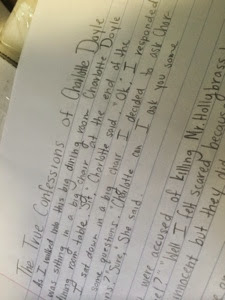 The True Confessions of Charlotte Doyle
As I walked into this big dining room Charlotte Doyle
was sitting in a big chair at the end of the
dining room table.
sat down in a big chair. I decided to ask Char-
some questions. Charlotte said "Ok". I responded
Charlotte can I ask you some
? Sure, She said.
were accused of killing Mr. Hollybrass
"Well I felt scared because
innocent but they did